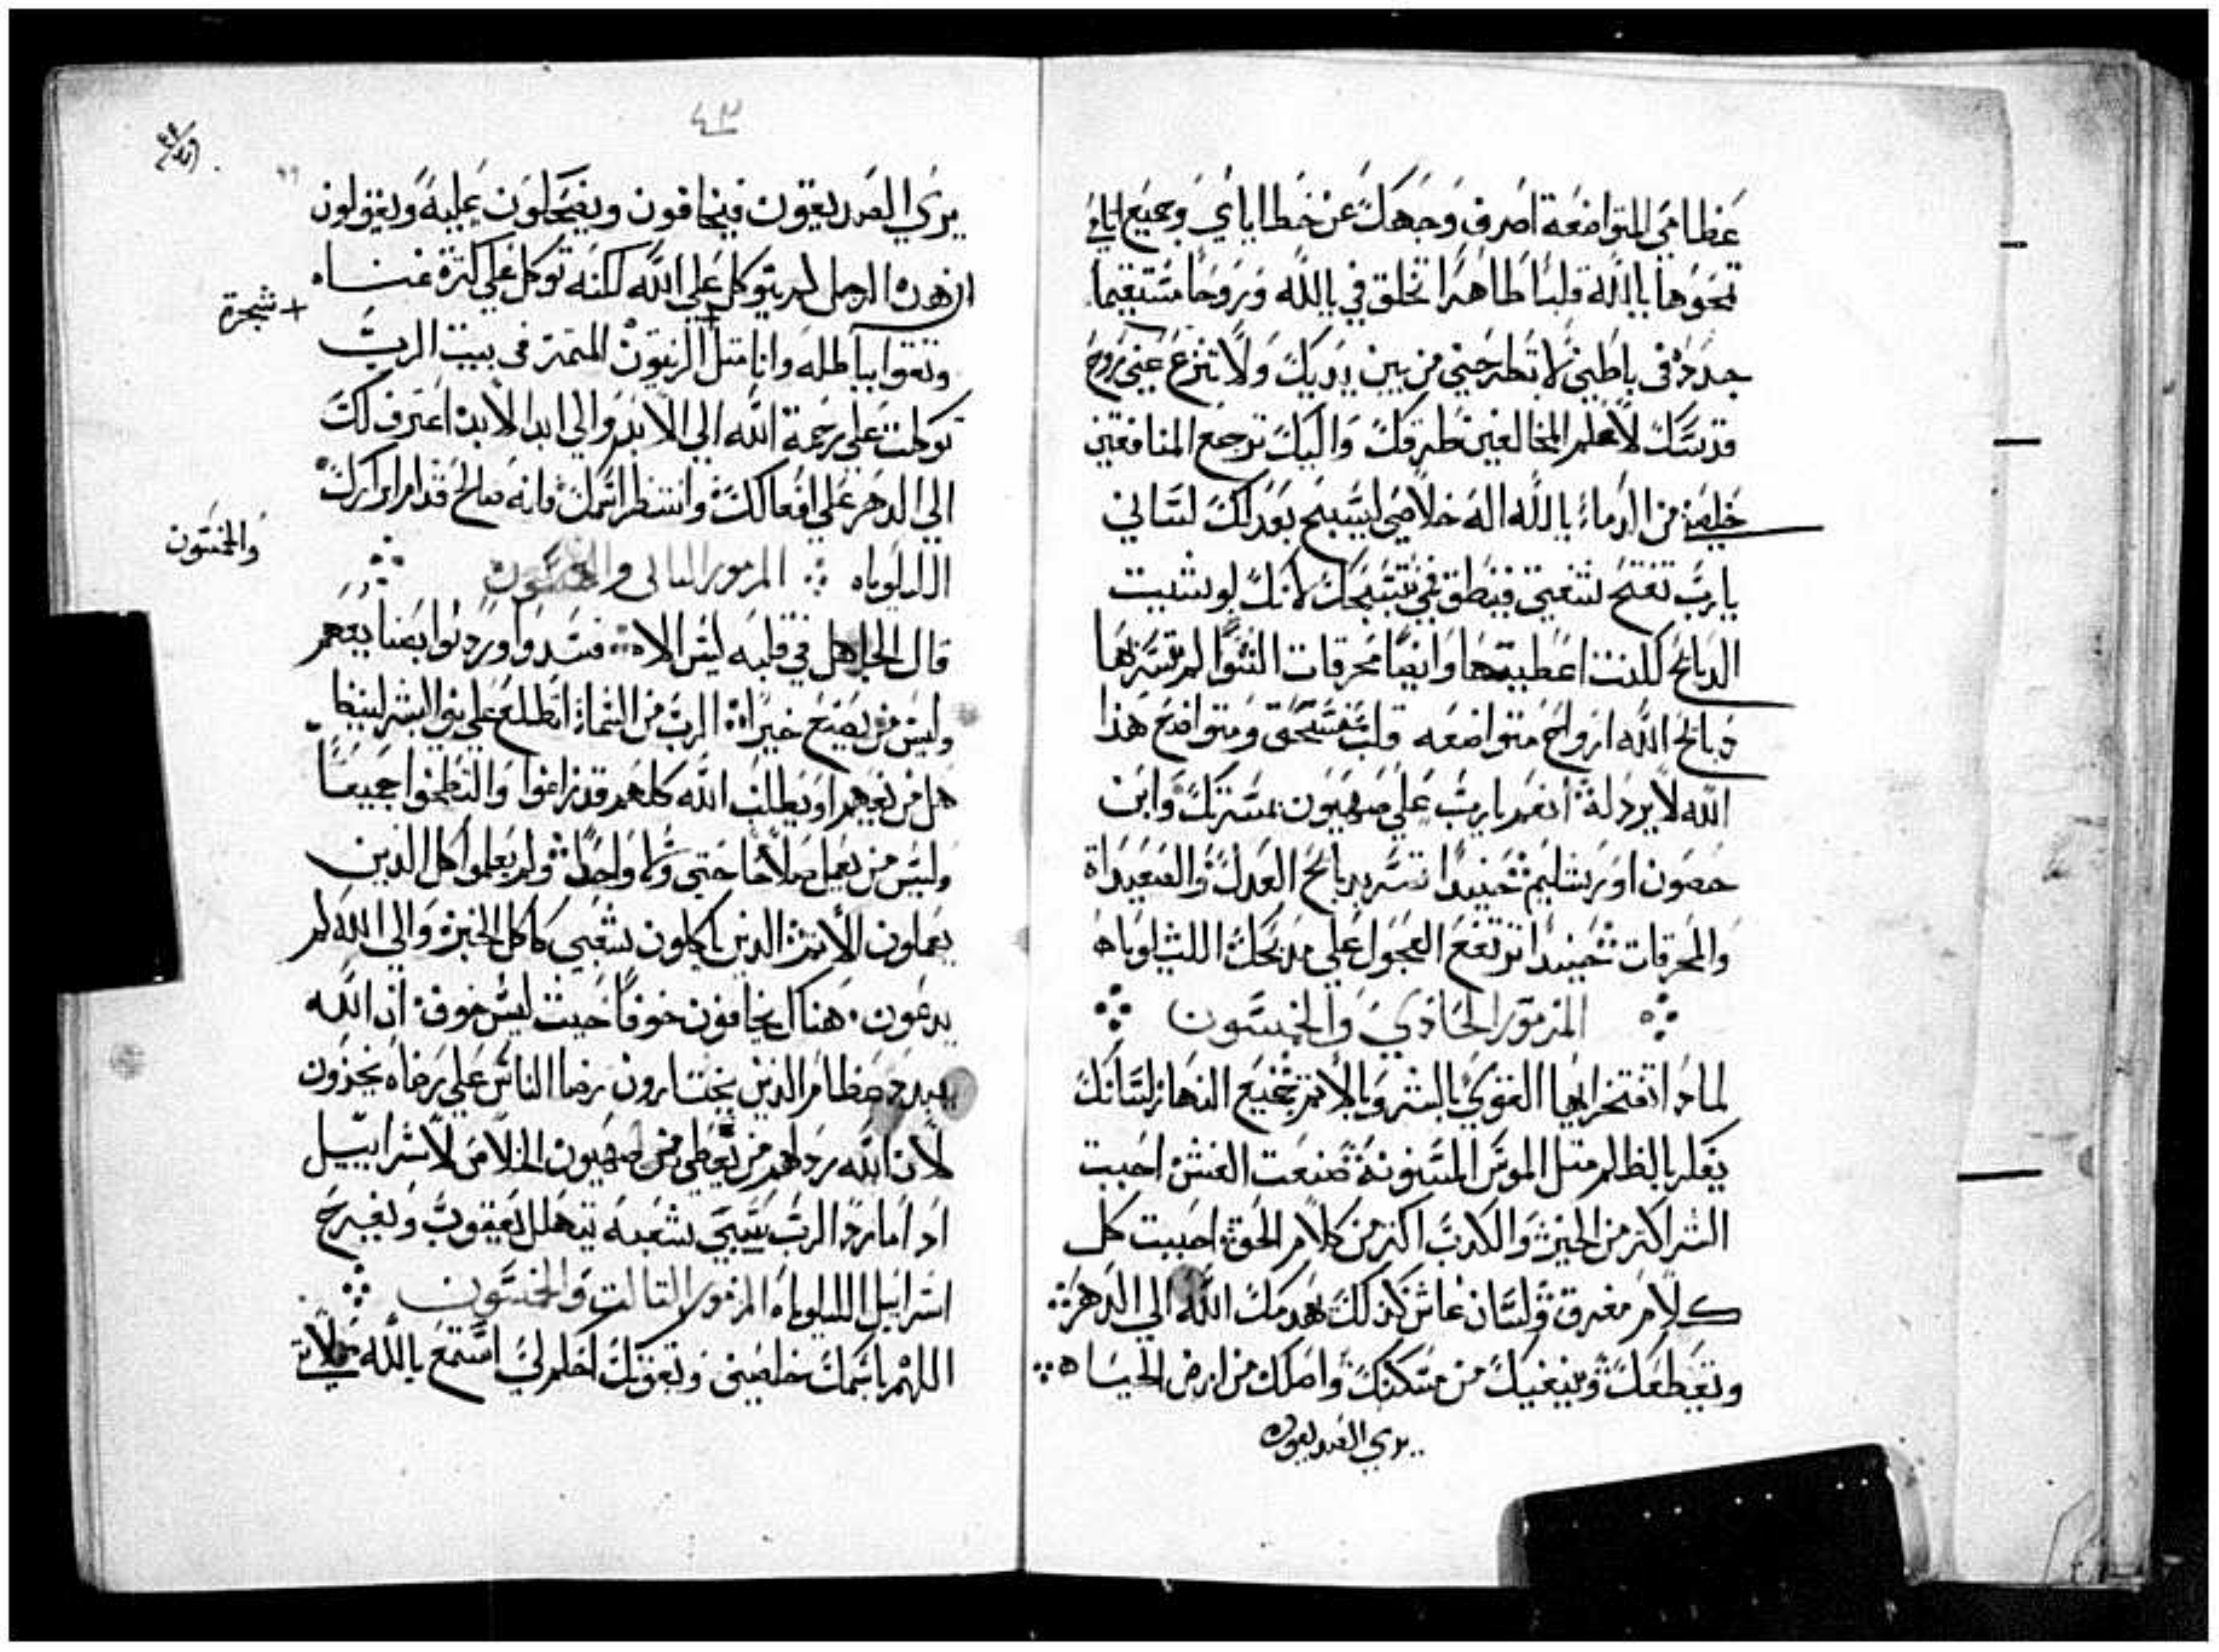 عظامي المتواضعة اصرف وجهك عن خطاياي وجميع اثامي
تمحوها ياالله قلبًا طاهرًا تخلق في ياالله وروحًا مستقيما
جدده في باطني لا تطرحني من بين يديك ولا تنزع عني روح
قدسك لاعلم المخالفين طرقك واليك ترجع المنافقين
خلصني من الدماء ياالله اله خلاصي ليسبح بعدلك لساني
يارب تفتح شفتي فينطق في تسبحك لانك لو شيت
الدبائح لكنت اعطيتها وايضا محرقات التنوا لم تسر بها
دبائح الله ارواح متواضعه قلب منسحق ومتواضع هذا
الله لا يردله انعم يارب علي صهيون بمسرتك وابن
حصون اورشليم حينيدا تسر بدبائح العدل والصعيداة
والمحرقات حينيدا ترتفع العجول علي مدبحك الليلوياه
المزمور الحادي والخمسون
لمادا تفتخر ايها القوي بالشر وبالاثم جميع النهار لسانك
يفكر بالظلم متل الموس المسنونة صنعت الغش احببت
الشر اكتر من الخير والكدب اكتر من كلام الحق احببت كل
كلام مغرق ولسان غاش كدلك يهدمك الله الي الدهر
وتقطعك وينفيك من مسكنك واصلك من ارض الحيا ه
يري الصديقون
٤٣
يري الصديقون فيخافون ويضحكون عليه ويقولون
ان هدا الرجل لم يتوكل علي الله لكنه توكل علي كترة غناه
+ شجرة
وتقوا بباطله وانا متل الزيتون المتمر في بيت الرب
توكلت علي رحمة الله الي الابد والي ابد الابد اعترف لك
الي الدهر علي افعالك وانتظر اسمك فانه صالح قدام ابرارك
الليلوياه المزمور التاني والخمسون
والخمسون
قال الجاهل في قلبه ليس الاه فسدوا وردلوا بصنايعهم
وليس من يصنع خيرا الرب من السماء اطلع علي بني البشر لينظر
هل من يفهم او يطلب الله كلهم قد زاغوا والتطخوا جميعًا
وليس من يعمل صلاحًا حتي ولا واحدًا ولم يعلموا كل الدين
يعملون الاثم الدين ياكلون شعبي كاكل الخبز والي الله لم
يدعون هناك يخافون خوفًا حيث ليس خوف ان الله
يبدد عظام الدين يختارون رضا الناس علي رضاه يخزون
لان الله ردلهم من يعطي من صهيون الخلاص لاسراييل
ادا ما رد الرب سبي شعبه يتهلل يعقوب ويفرح
اسراييل الليلوياه المزمور التالت والخمسون
اللهم باسمك خلصني وبقوتك احكم لي استمع ياالله صلاتي